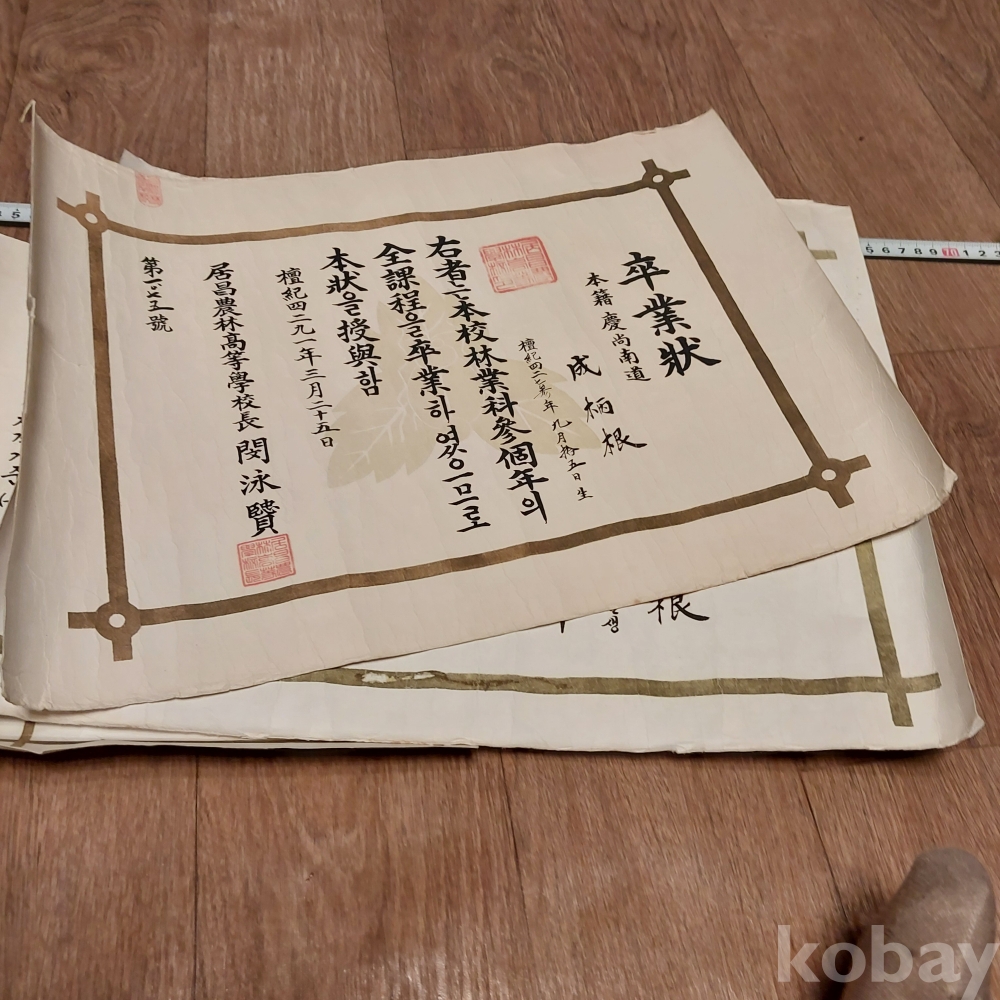 卒業狀
本籍 慶尙南道
成 柄 根
年 九月拾五日生
右者는本校林業科參個年의
全課程을卒業하였으므로
本狀을授與함
檀紀四二九一年三月二十五日
居昌農林高等學校長 閔泳贊
號
根
5
5 6 7 8 9 10 1 2 3
kobay